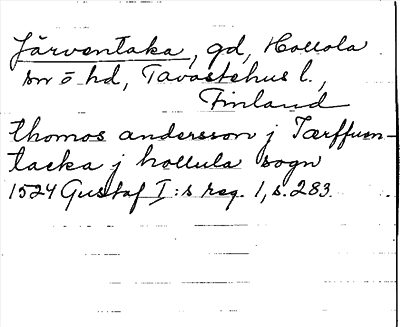 Järventaka, gd, Hollola
sn o hd, Tavastehus l.,
Finland
thomos andersson j Iærffuen-
tacka j hollula sogn
1524 Gustaf I:s reg. 1, s. 283.